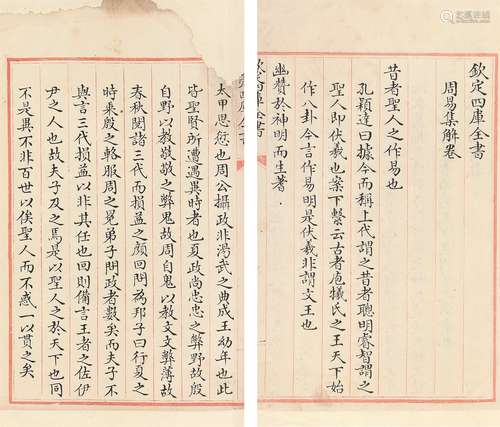 欽定四庫全書
周易集解卷
昔者聖人之作易也
孔穎達曰據今而稱上代謂之昔者聰明睿智謂之
聖人即伏羲也案下繫云古者庖犧氏之王天下始
作八卦今言作易明是伏羲非謂文王也
幽贊於神明而生蓍
庫全書
庫全書
太甲思愆也周公攝政非湯武之典成王幼年也此
皆聖賢所遭遇異時者也夏政尚忠忠之弊野故殷
自野以教敬敬之弊鬼故周自鬼以教文文弊薄故
春秋閱諸三代而損益之顏回問為邦子曰行夏之
時乘殷之輅服周之冕弟子問政者數矣而夫子不
與言三代損益以非其任也回則備言王者之佐伊
尹之人也故夫子及之焉是以聖人之於天下也同
不是異不非百世以俟聖人而不惑一以貫之矣